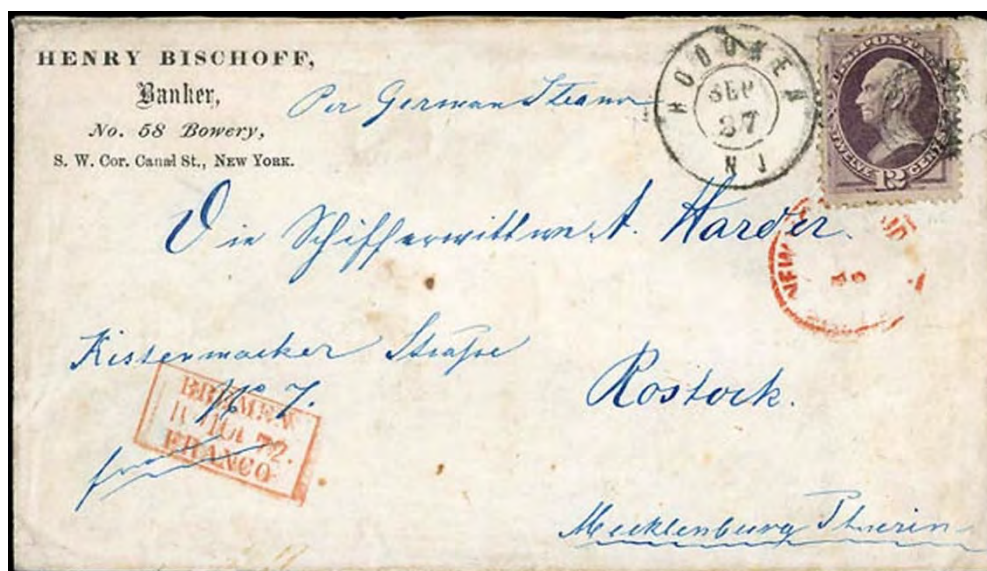 HENRY BISCHOFF,
Banker,
No. 58 Bowery,
S. W. Cor. Canal St., NEW YORK.
Per German Steamer
HOBOKEN
SEP
27
N J
U.S. POSTAGE
TWELVE CENTS
12
Die Schifferwittwe A. Harder.
NEW
Kistenmacker Straße
No 7.
Rostock.
BREMEN
72.
FRANCO
Mecklenburg Schwerin